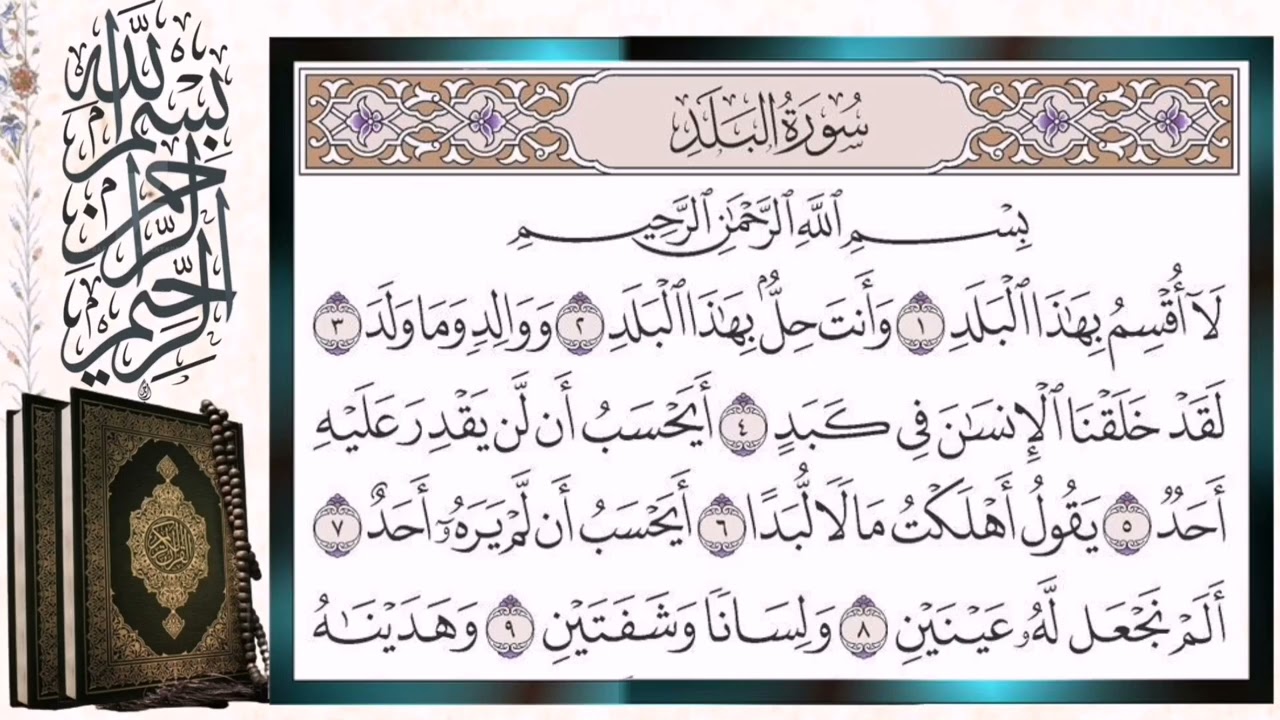 بِسْمِ اللَّهِ الرَّحْمَنِ الرَّحِيمِ
سُورَةُ البَلَدِ
بِسْمِ ٱللَّهِ ٱلرَّحْمَٰنِ ٱلرَّحِيمِ
لَآ أُقْسِمُ بِهَٰذَا ٱلْبَلَدِ ١ وَأَنتَ حِلٌّۢ بِهَٰذَا ٱلْبَلَدِ ٢ وَوَالِدٍ وَمَا وَلَدَ ٣
لَقَدْ خَلَقْنَا ٱلْإِنسَٰنَ فِى كَبَدٍ ٤ أَيَحْسَبُ أَن لَّن يَقْدِرَ عَلَيْهِ
أَحَدٌ ٥ يَقُولُ أَهْلَكْتُ مَالًا لُّبَدًا ٦ أَيَحْسَبُ أَن لَّمْ يَرَهُۥٓ أَحَدٌ ٧
أَلَمْ نَجْعَل لَّهُۥ عَيْنَيْنِ ٨ وَلِسَانًا وَشَفَتَيْنِ ٩ وَهَدَيْنَٰهُ
القرآن الكريم